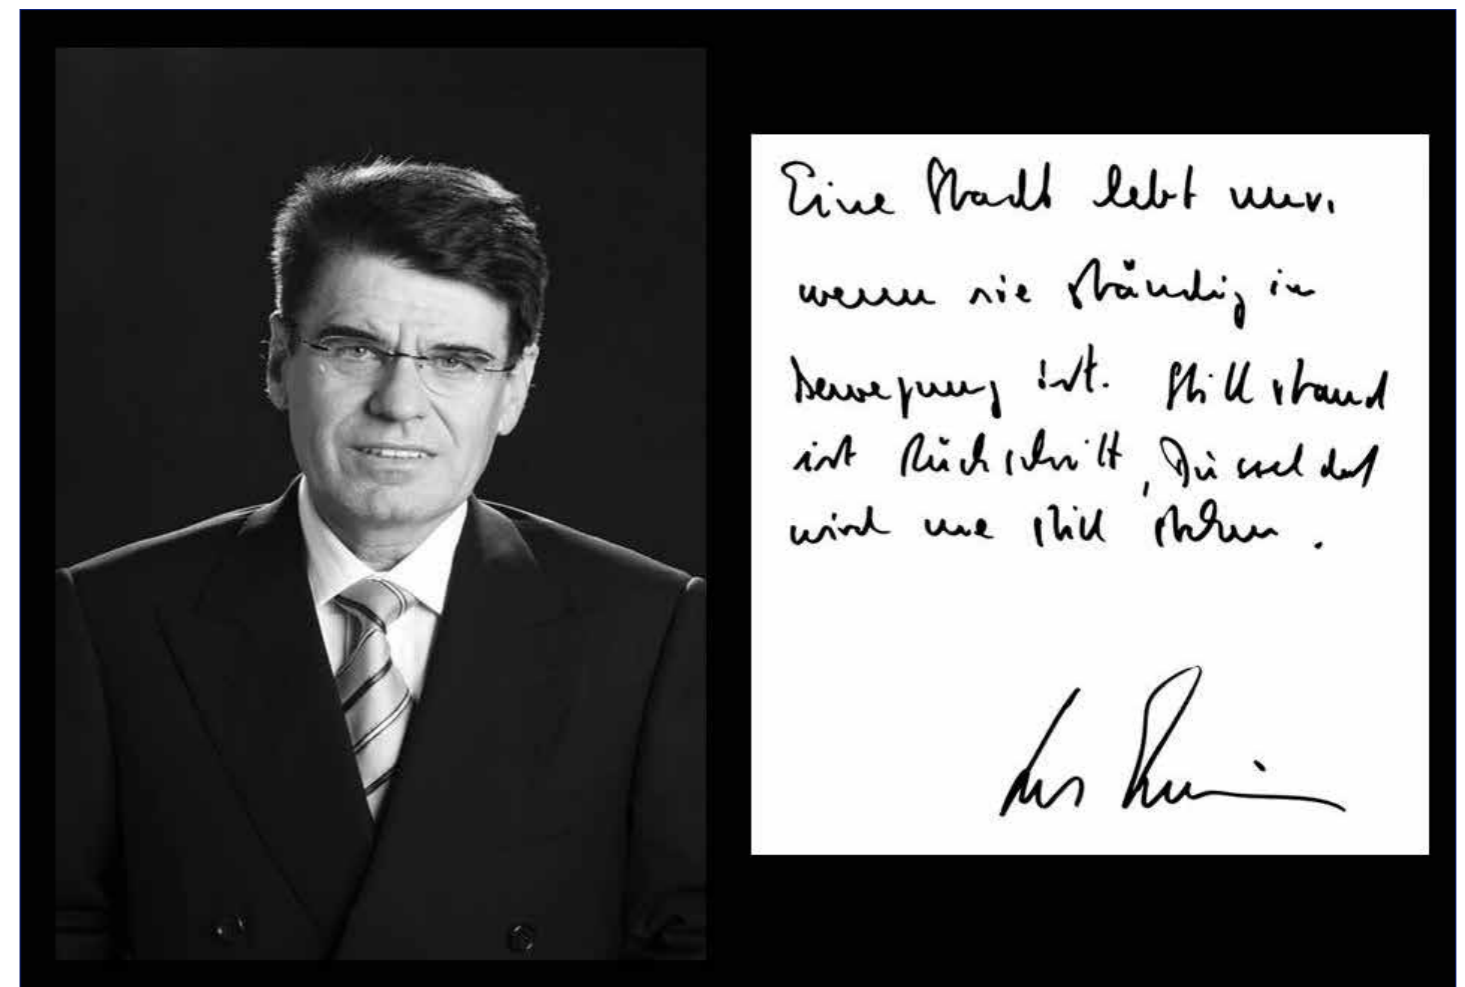 Eine Stadt lebt nur,
wenn sie ständig in
Bewegung ist. Stillstand
ist Rückschritt, Düsseldorf
wird nie still stehen.